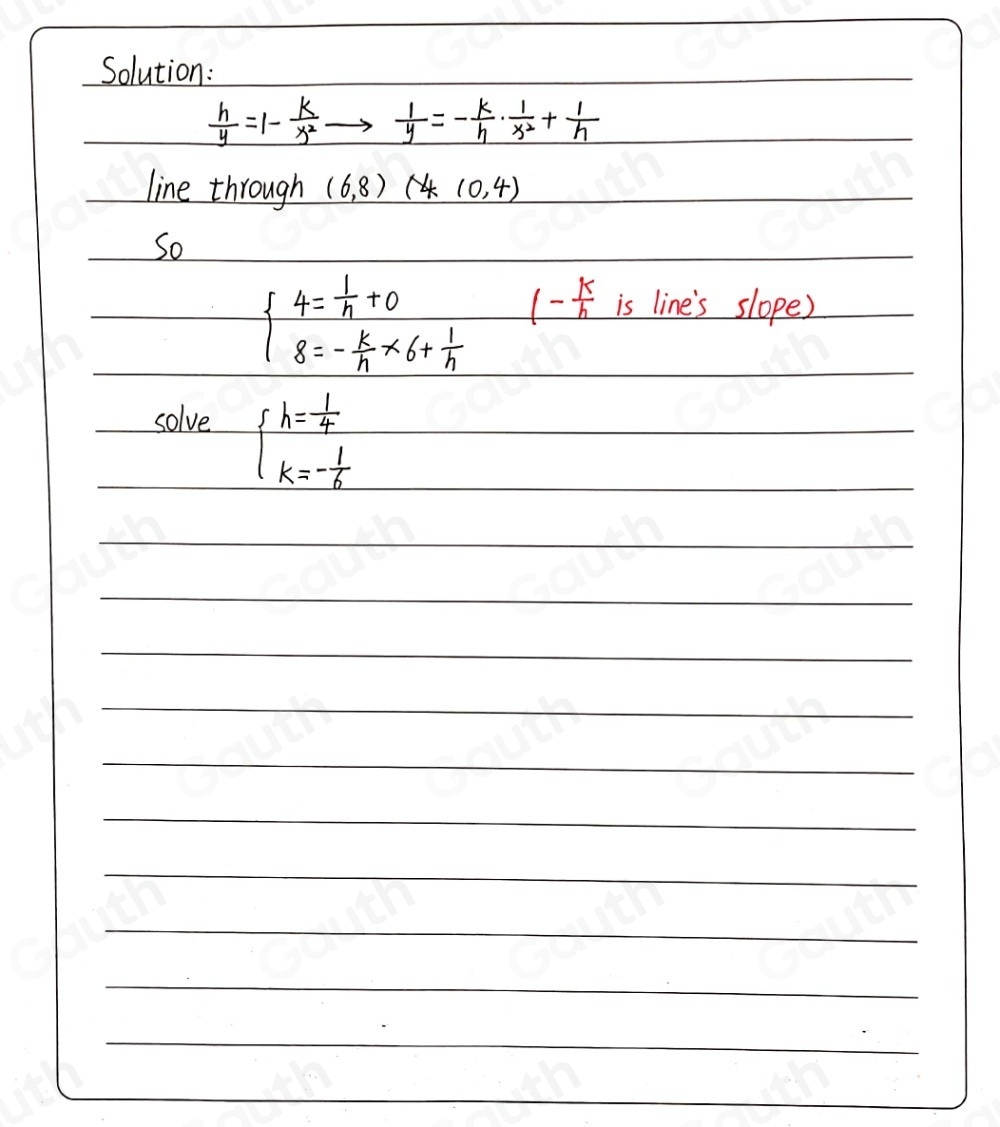 Solution:
h/y = 1 - k/x² → 1/y = -k/h · 1/x² + 1/h
line through (6,8) (0,4)
So
4 = 1/h + 0 (-k/h is line's slope)
8 = -k/h × 6 + 1/h
solve h = 1/4
k = -1/6